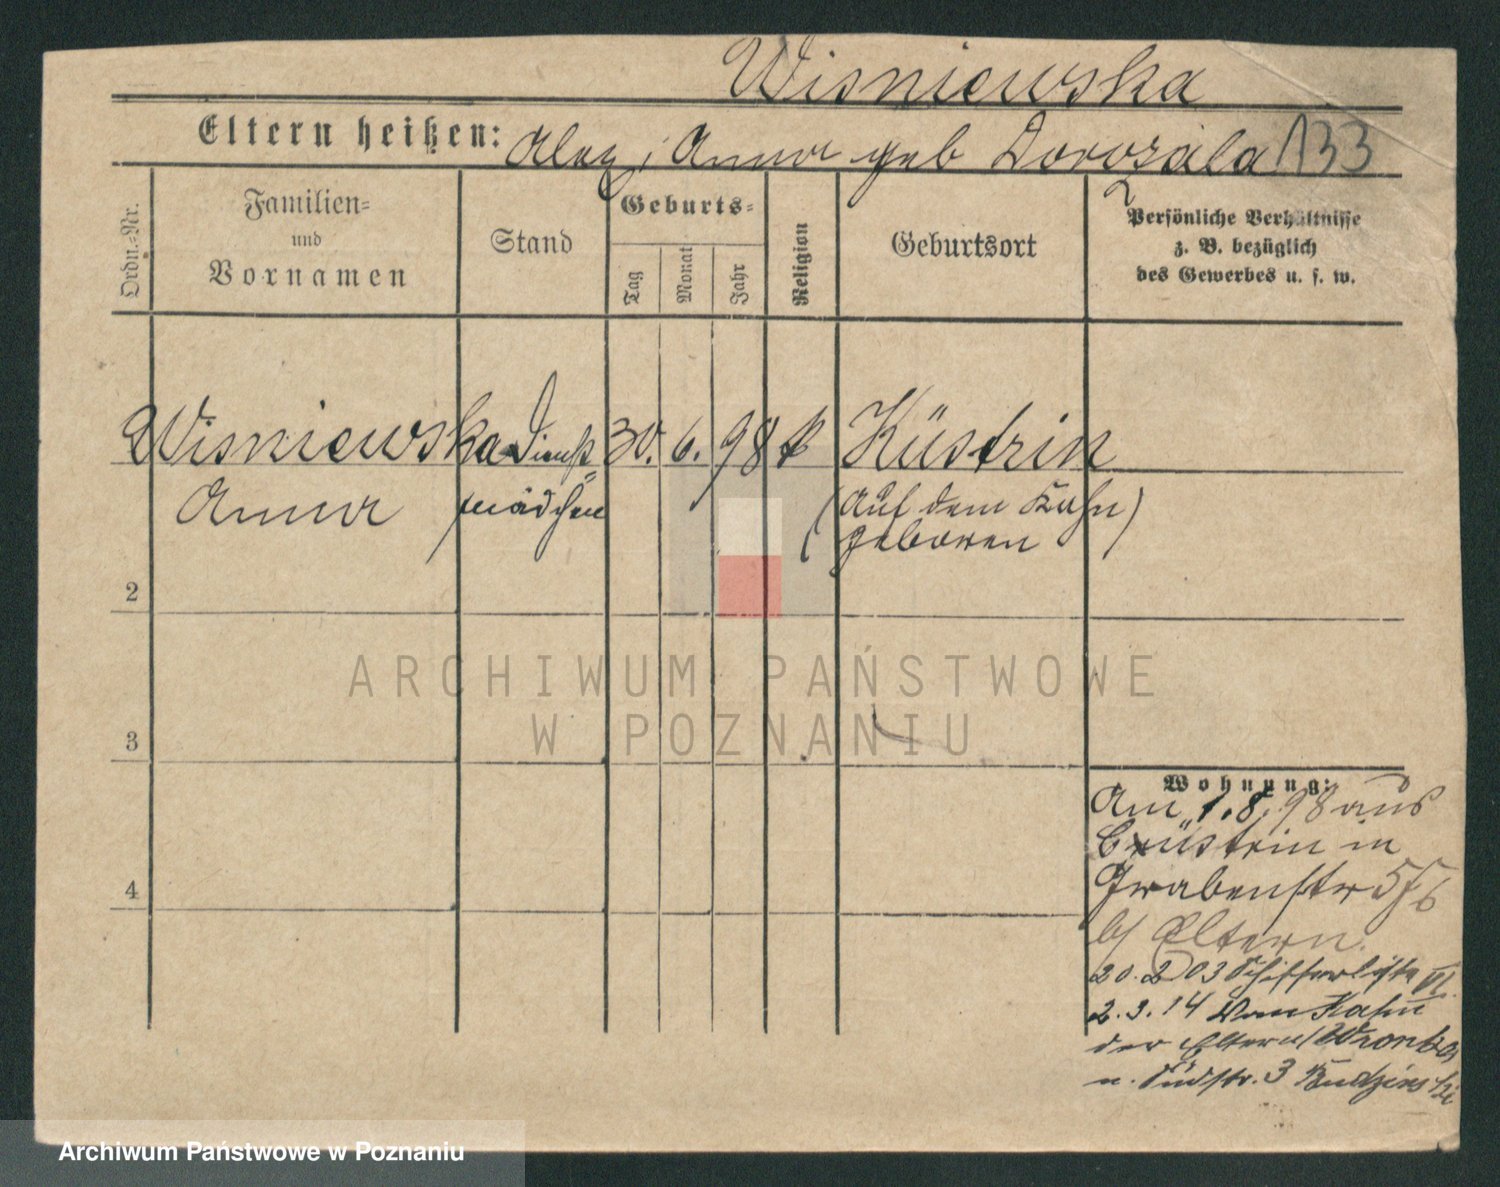 Wisniewska
Eltern heißen: Alex, Anna geb Dorozala 133
Ordn.-Nr.
Familien-
und
Vornamen
Stand
Geburts-
Tag
Monat
Jahr
Religion
Geburtsort
Persönliche Verhältnisse
z. B. bezüglich
des Gewerbes u. s. w.
Wisniewska Dienst 30. 6. 98 k Küstrin
Anna mädchen (Auf dem Kahn
geboren)
2
3
4
Wohnung:
Am 1.8.98 aus
Cüstrin in
Grabenstr 5/6
b/ Eltern.
20.2.03 Schifferliste VI.
2.3.14 Vom Kahn
der Eltern / Wronka
n. Südstr. 3 Budzinski
ARCHIWUM PAŃSTWOWE
W POZNANIU
Archiwum Państwowe w Poznaniu